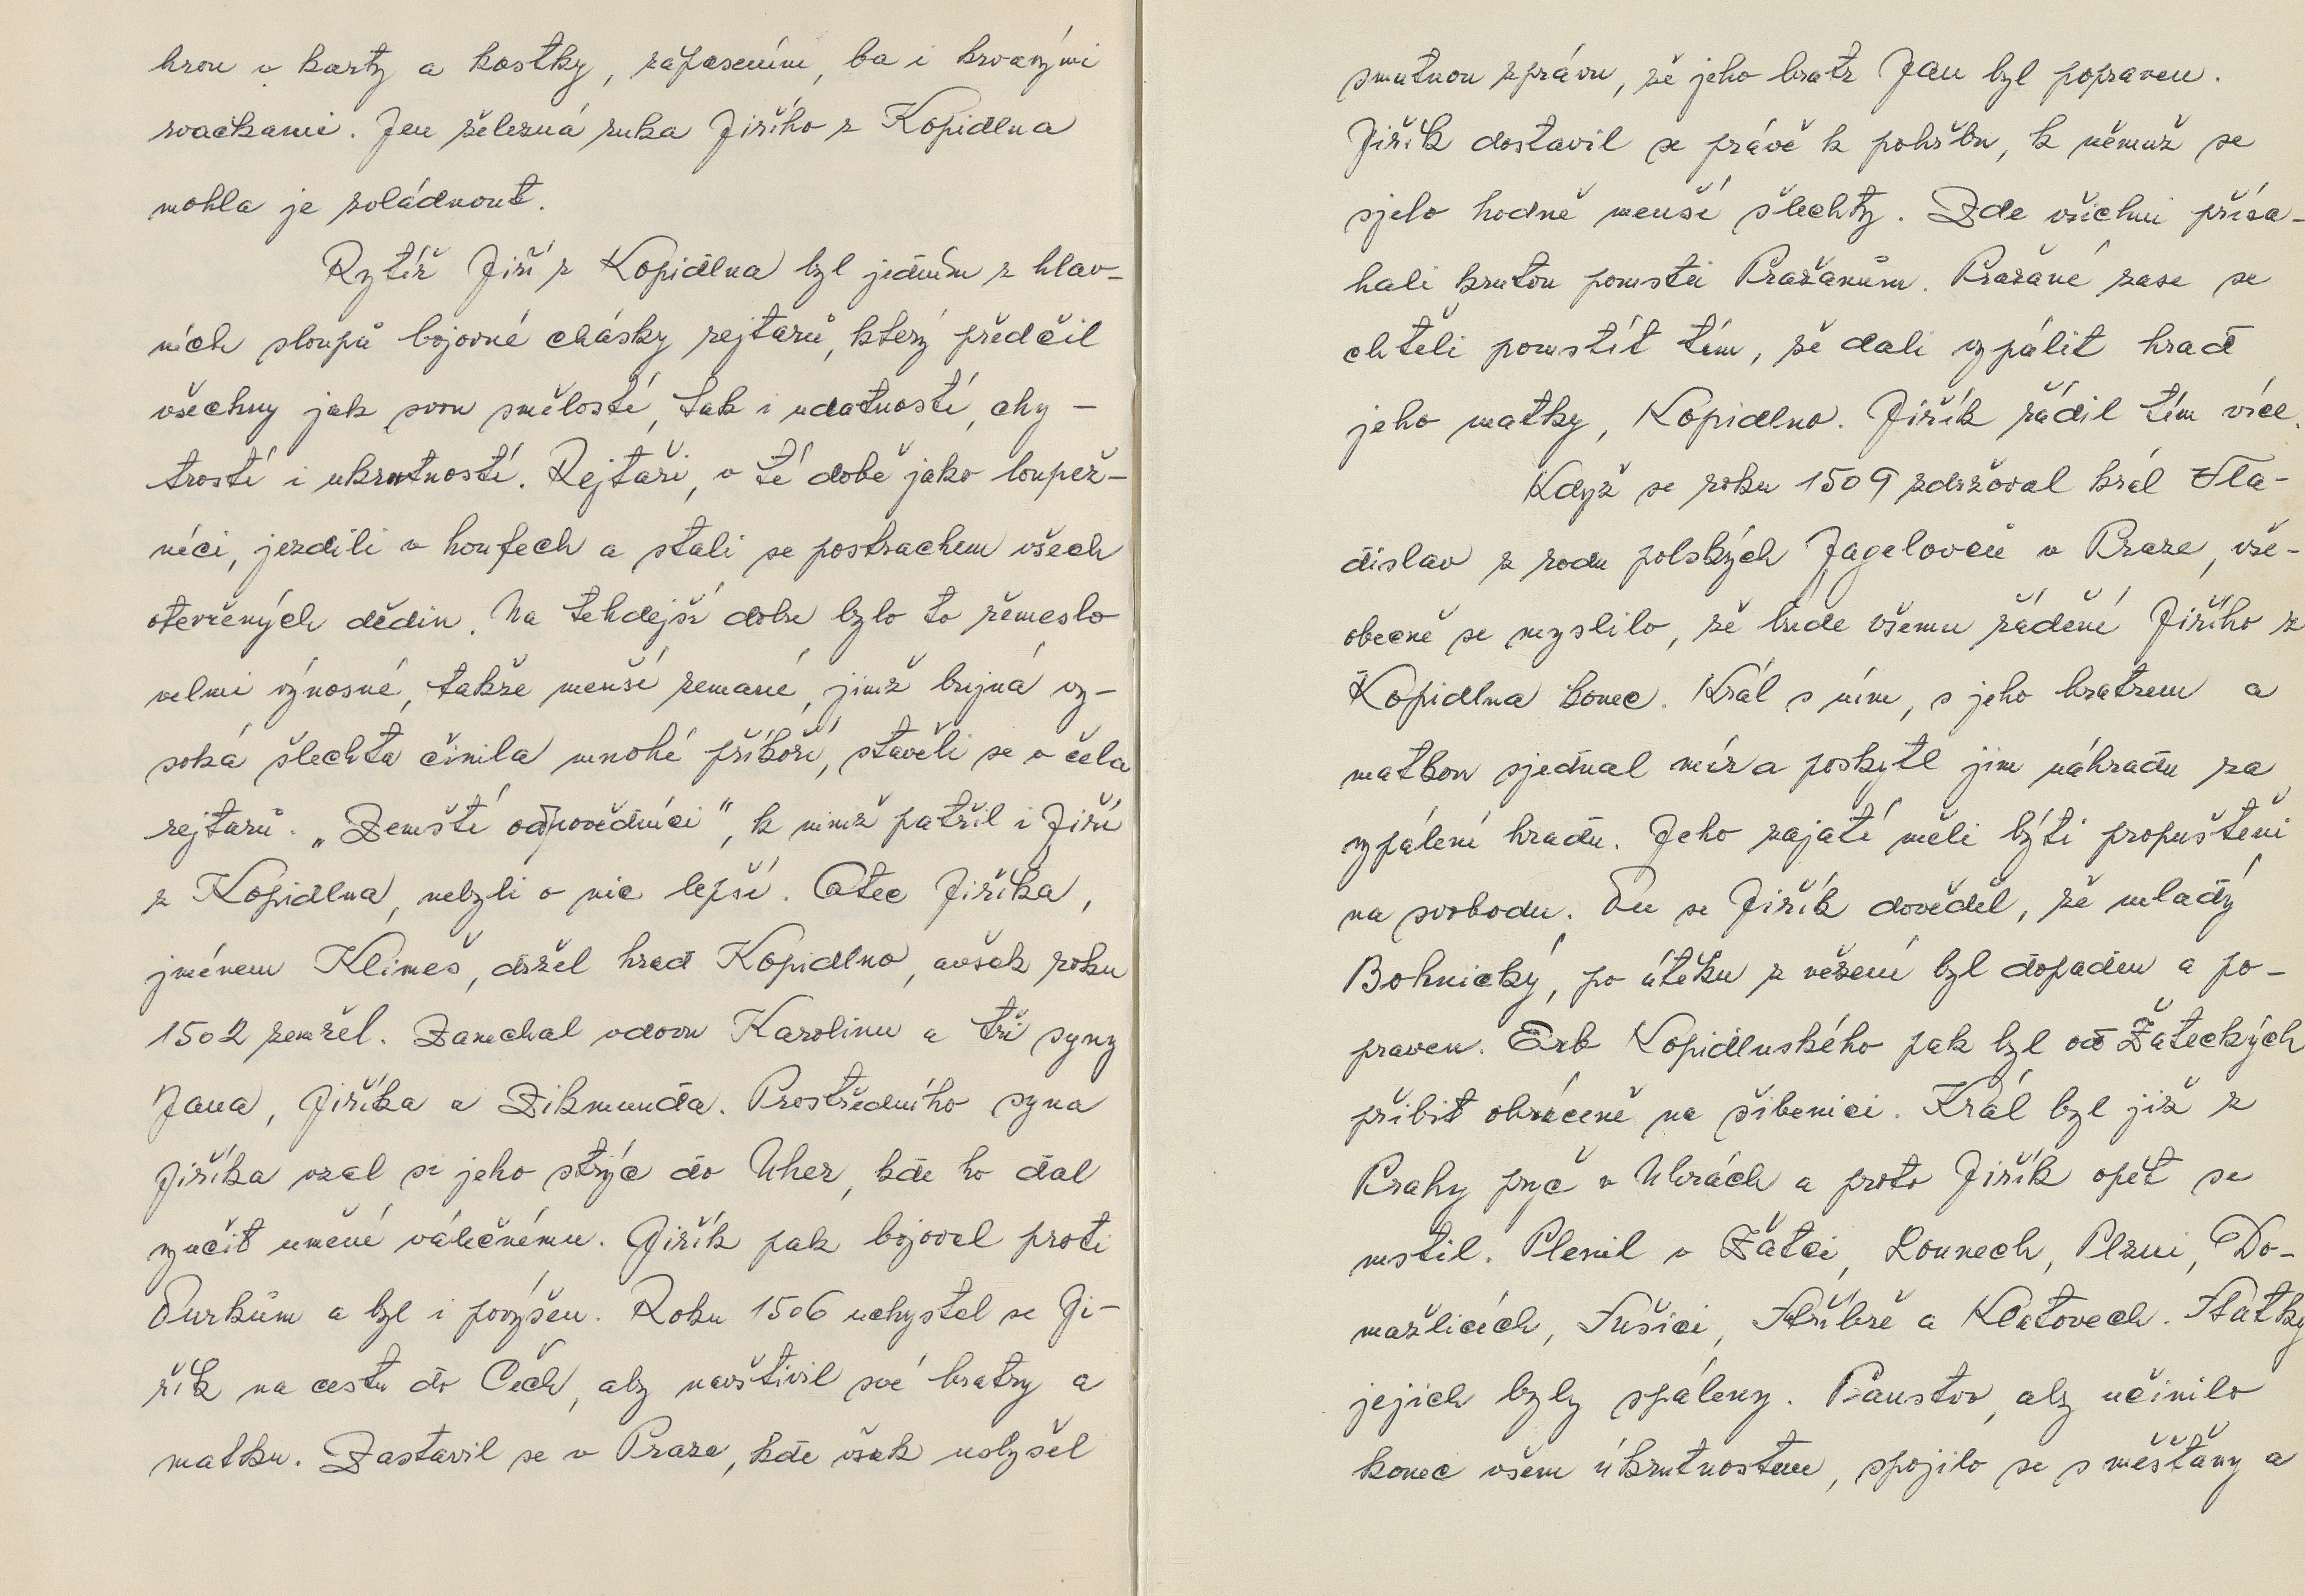 hrou v karty a kostky, zápasením, ba i krvavými
rvačkami. Jen železná ruka Jiřího z Kopidlna
mohla je zvládnout.
Rytíř Jiří z Kopidlna byl jedním z hlav-
ních sloupů bojovné chásky rejtarů, který předčil
všechny jak svou smělostí, tak i udatností, chy-
trostí i ukrutností. Rejtaři, v té době jako loupež-
níci, jezdili v houfech a stali se postrachem všech
otevřených dědin. Na tehdejší dobu bylo to řemeslo
velmi výnosné, takže menší zemané, jimž bujná vy-
soká šlechta činila mnohé příkoří, stavěli se v čela
rejtarů. „Zemští odpovědníci", k nimž patřil i Jiří
z Kopidlna, nebyli o nic lepší. Otec Jiříka,
jménem Klimeš, držel hrad Kopidlno, avšak roku
1502 zemřel. Zanechal vdovu Karolinu a tři syny
Jana, Jiříka a Zikmunda. Prostředního syna
Jiříka vzal si jeho strýc do Uher, kde ho dal
vyučit umění válečnému. Jiřík pak bojoval proti
Turkům a byl i povýšen. Roku 1506 uchystal se Ji-
řík na cestu do Čech, aby navštívil své bratry a
matku. Zastavil se v Praze, kde však uslyšel
smutnou zprávu, že jeho bratr Jan byl popraven.
Jiřík dostavil se právě k pohřbu, k němuž se
sjelo hodně menší šlechty. Zde všichni přísa-
hali krutou pomstu Pražanům. Pražané zase se
chtěli pomstít tím, že dali vypálit hrad
jeho matky, Kopidlno. Jiřík řádil tím více.
Když se roku 1509 zdržoval král Vla-
dislav z rodu polských Jagelovců v Praze, vše-
obecně se myslilo, že bude všemu řádění Jiřího z
Kopidlna konec. Král s ním, s jeho bratrem a
matkou sjednal mír a poskytl jim náhradu za
vypálení hradu. Jeho zajatí měli býti propuštěni
na svobodu. Tu se Jiřík dověděl, že mladý
Bohnický, po útěku z vězení byl dopaden a po-
praven. Erb Kopidlnského pak byl od Žateckých
přibit obráceně na šibenici. Král byl již z
Prahy pryč v Uhrách a proto Jiřík opět se
mstil. Plenil v Žatci, Lounech, Plzni, Do-
mažlicích, Sušici, Stříbře a Klatovech. Statky
jejich byly spáleny. Panstvo, aby učinilo
konec všem úkrutnostem, spojilo se s měšťany a